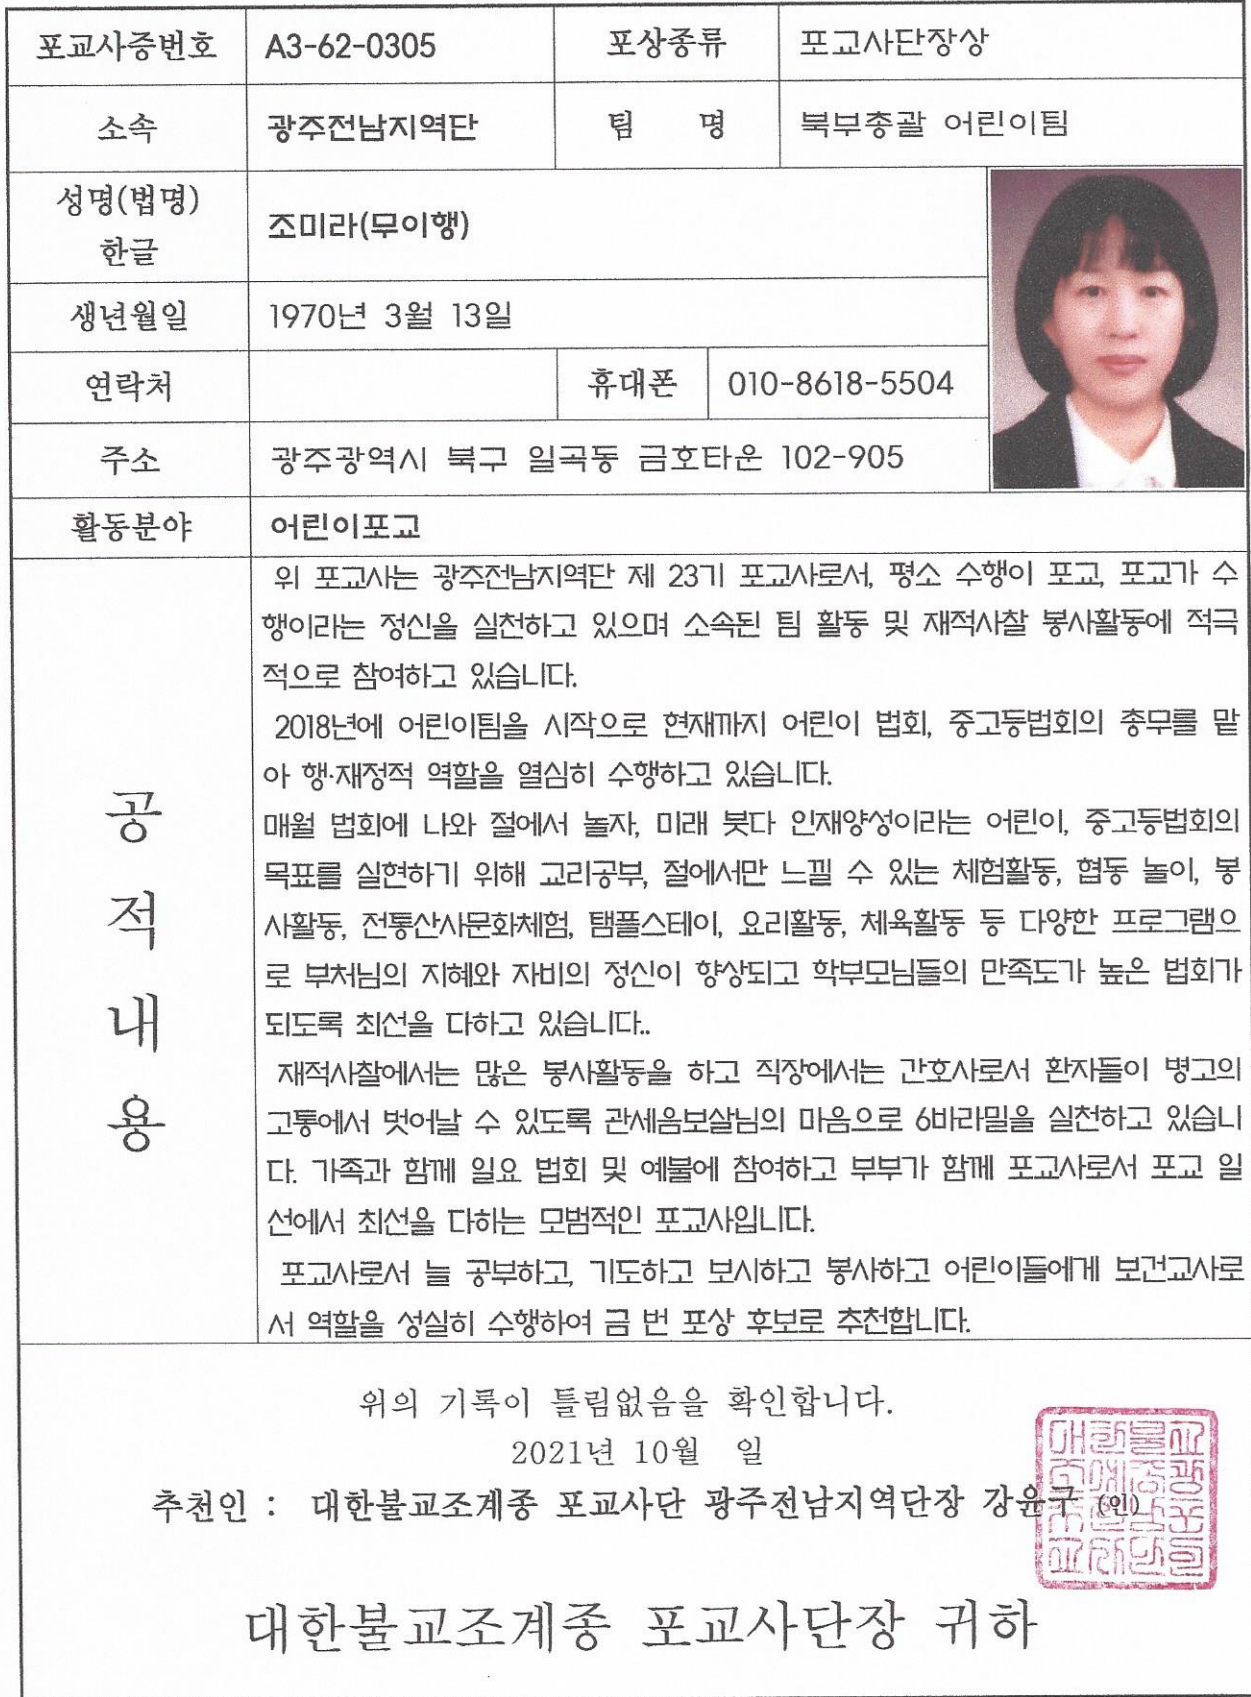 포교사증번호 A3-62-0305 포상종류 포교사단장상
소속 광주전남지역단 팀 명 북부총괄 어린이팀
성명(법명)
한글
조미라(무이행)
생년월일 1970년 3월 13일
연락처 휴대폰 010-8618-5504
주소 광주광역시 북구 일곡동 금호타운 102-905
활동분야 어린이포교
공적내용
위 포교사는 광주전남지역단 제 23기 포교사로서, 평소 수행이 포교, 포교가 수
행이라는 정신을 실천하고 있으며 소속된 팀 활동 및 재적사찰 봉사활동에 적극
적으로 참여하고 있습니다.
2018년에 어린이팀을 시작으로 현재까지 어린이 법회, 중고등법회의 총무를 맡
아 행·재정적 역할을 열심히 수행하고 있습니다.
매월 법회에 나와 절에서 놀자, 미래 붓다 인재양성이라는 어린이, 중고등법회의
목표를 실현하기 위해 교리공부, 절에서만 느낄 수 있는 체험활동, 협동 놀이, 봉
사활동, 전통산사문화체험, 탬플스테이, 요리활동, 체육활동 등 다양한 프로그램으
로 부처님의 지혜와 자비의 정신이 향상되고 학부모님들의 만족도가 높은 법회가
되도록 최선을 다하고 있습니다..
재적사찰에서는 많은 봉사활동을 하고 직장에서는 간호사로서 환자들이 병고의
고통에서 벗어날 수 있도록 관세음보살님의 마음으로 6바라밀을 실천하고 있습니
다. 가족과 함께 일요 법회 및 예불에 참여하고 부부가 함께 포교사로서 포교 일
선에서 최선을 다하는 모범적인 포교사입니다.
포교사로서 늘 공부하고, 기도하고 보시하고 봉사하고 어린이들에게 보건교사로
서 역할을 성실히 수행하여 금 번 포상 후보로 추천합니다.
위의 기록이 틀림없음을 확인합니다.
2021년 10월 일
추천인 : 대한불교조계종 포교사단 광주전남지역단장 강윤구 (인)
대한불교조계종 포교사단장 귀하